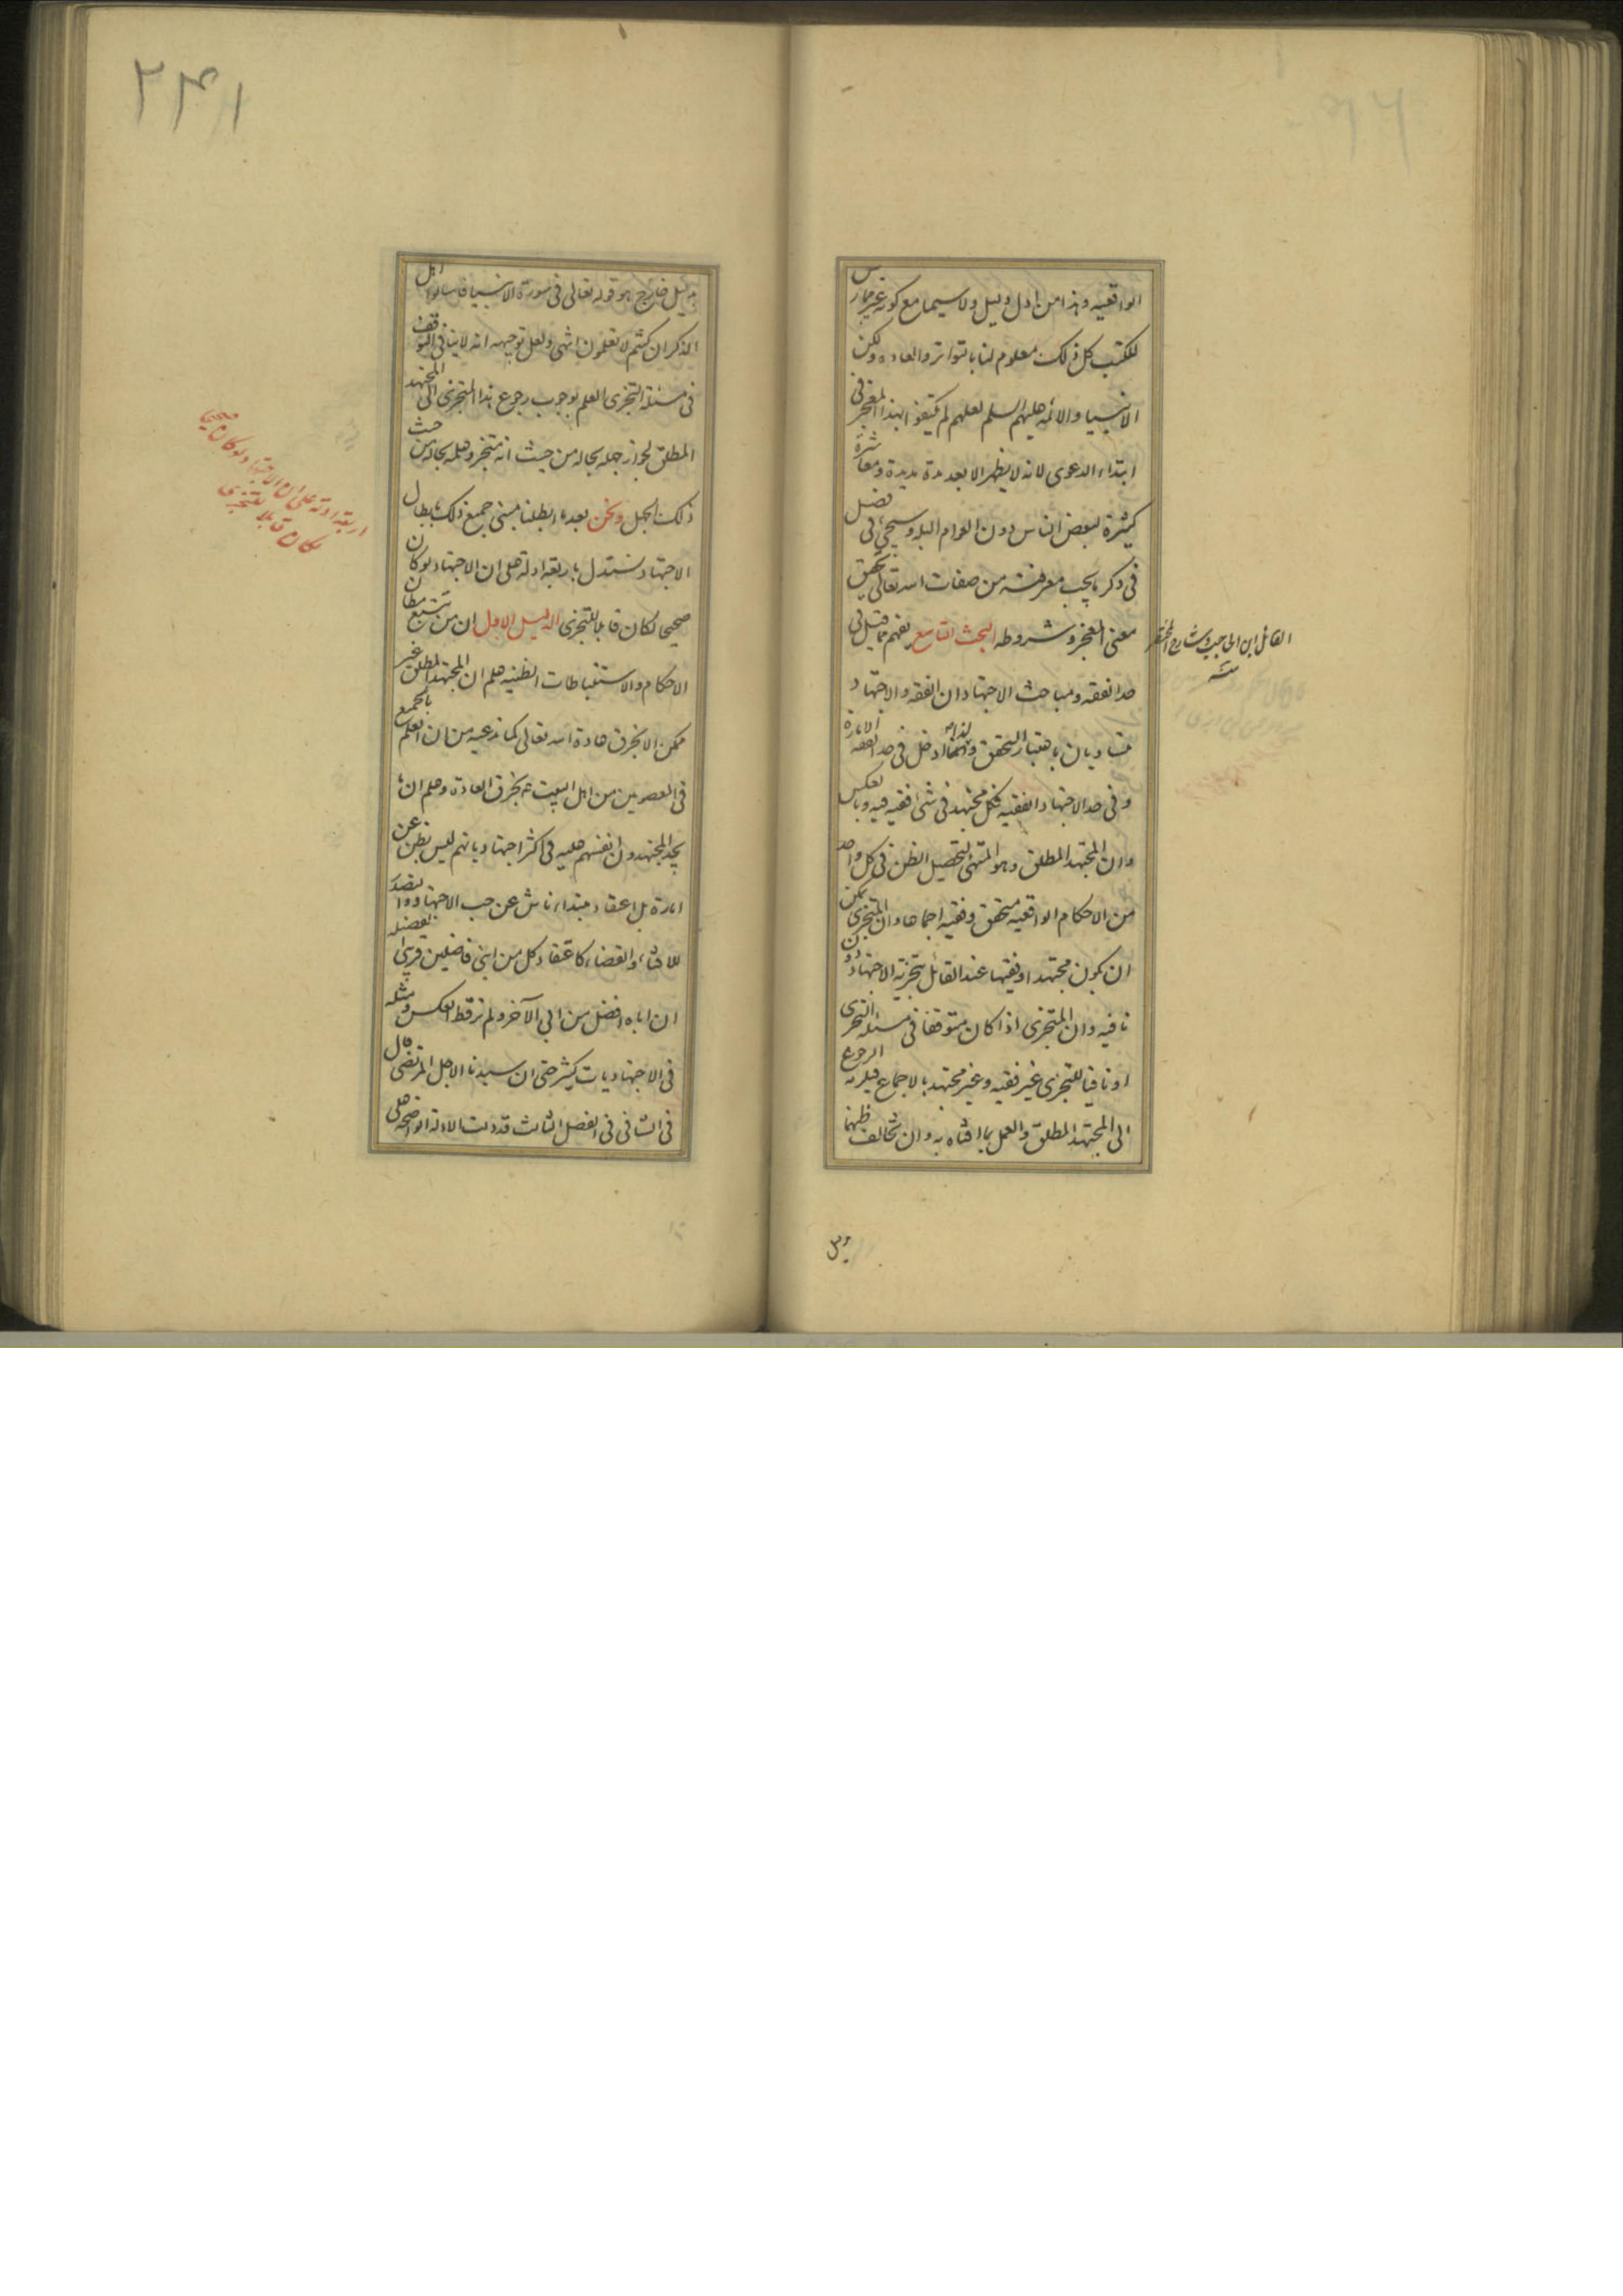 الواقعیه وهذا من ادل دلیل ولا سیما مع کونه غیر ممارس
للکتب کل ذلک معلوم لنا بالتواتر والعاده ولکن
الانبیا والائمه علیهم السلم لعلهم لم یکتفوا بهذا المعجز فی
ابتداء الدعوی لانه لا یظهر الا بعد مدة مدیدة ومعاشرة
کثیرة لبعض الناس دون العوام البله وسیجئ فی فصل
فی ذکر ما یجب معرفته من صفات الله تعالی تحقیق
معنی المعجز وشروطه البحث التاسع یفهم مما قیل فی
حد الفقه ومباحث الاجتهاد ان الفقه والاجتهاد
متساویان باعتبار التحقق وانهما داخل فی حد الفقه
وفی حد الاجتهاد الفقیه فکل مجتهد فی شئ فقیه فیه وبالعکس
وان المجتهد المطلق وهو المتهئ لتحصیل الظن فی کل واحد
من الاحکام الواقعیه متحقق وفقیه اجماعا وان المتجزی یمکن
ان یکون مجتهدا وفقیها عند القائل بتجزئة الاجتهاد دون
نافیه وان المتجزی اذا کان متوقفا فی مسئلة التجزی
او نافیا للتجزی غیر فقیه وغیر مجتهد بالاجماع فیلزمه الرجوع
الی المجتهد المطلق والعمل بما افتاه به وان تخالف ظنهما
القائل ابن الحاجب وشارح المختصر
منه
۲۴۱
بدلیل خارج هو قوله تعالی فی سورة الانبیا فاسالوا اهل
الذکر ان کنتم لا تعلمون انتهی ولعل توجیهه انه لا ینافی التوقف
فی مسئلة التجزی العلم بوجوب رجوع هذا المتجزی الی المجتهد
المطلق لجواز جهله بحاله من حیث انه متجز وعلمه بحاله من حیث
ذلک الجهل ونحن بعد ما ابطلنا مبنی جمیع ذلک بابطال
الاجتهاد نستدل باربعة ادلة علی ان الاجتهاد لو کان
صحیحا لکان قابلا للتجزی الدلیل الاول ان من تتبع مظان
الاحکام والاستنباطات الظنیه علم ان المجتهد المطلق غیر
ممکن الا بخرق عادة الله تعالی کما ندعیه من ان العلم بالجمیع
فی المعصومین من اهل البیت ع بخرق العادة وعلم ان ما
یجد المجتهدون انفسهم علیه فی اکثر اجتهادیاتهم لیس بظن عن
امارة بل اعتقاد مبتداء ناش عن حب الاجتهاد والتصدی
للافتاء والقضاء کاعتقاد کل من ابنی فاضلین قریبی الفضل
ان اباه افضل من ابی الآخر ولم نر قط العکس ومثله
فی الاجتهادیات کثیر حتی ان سیدنا الاجل المرتضی قال
فی الشافی فی الفصل الثالث قد دلت الادلة الواضحه علی
اربعة ادلة علی ان الاجتهاد لو کان صحیحا
لکان قابلا للتجزی